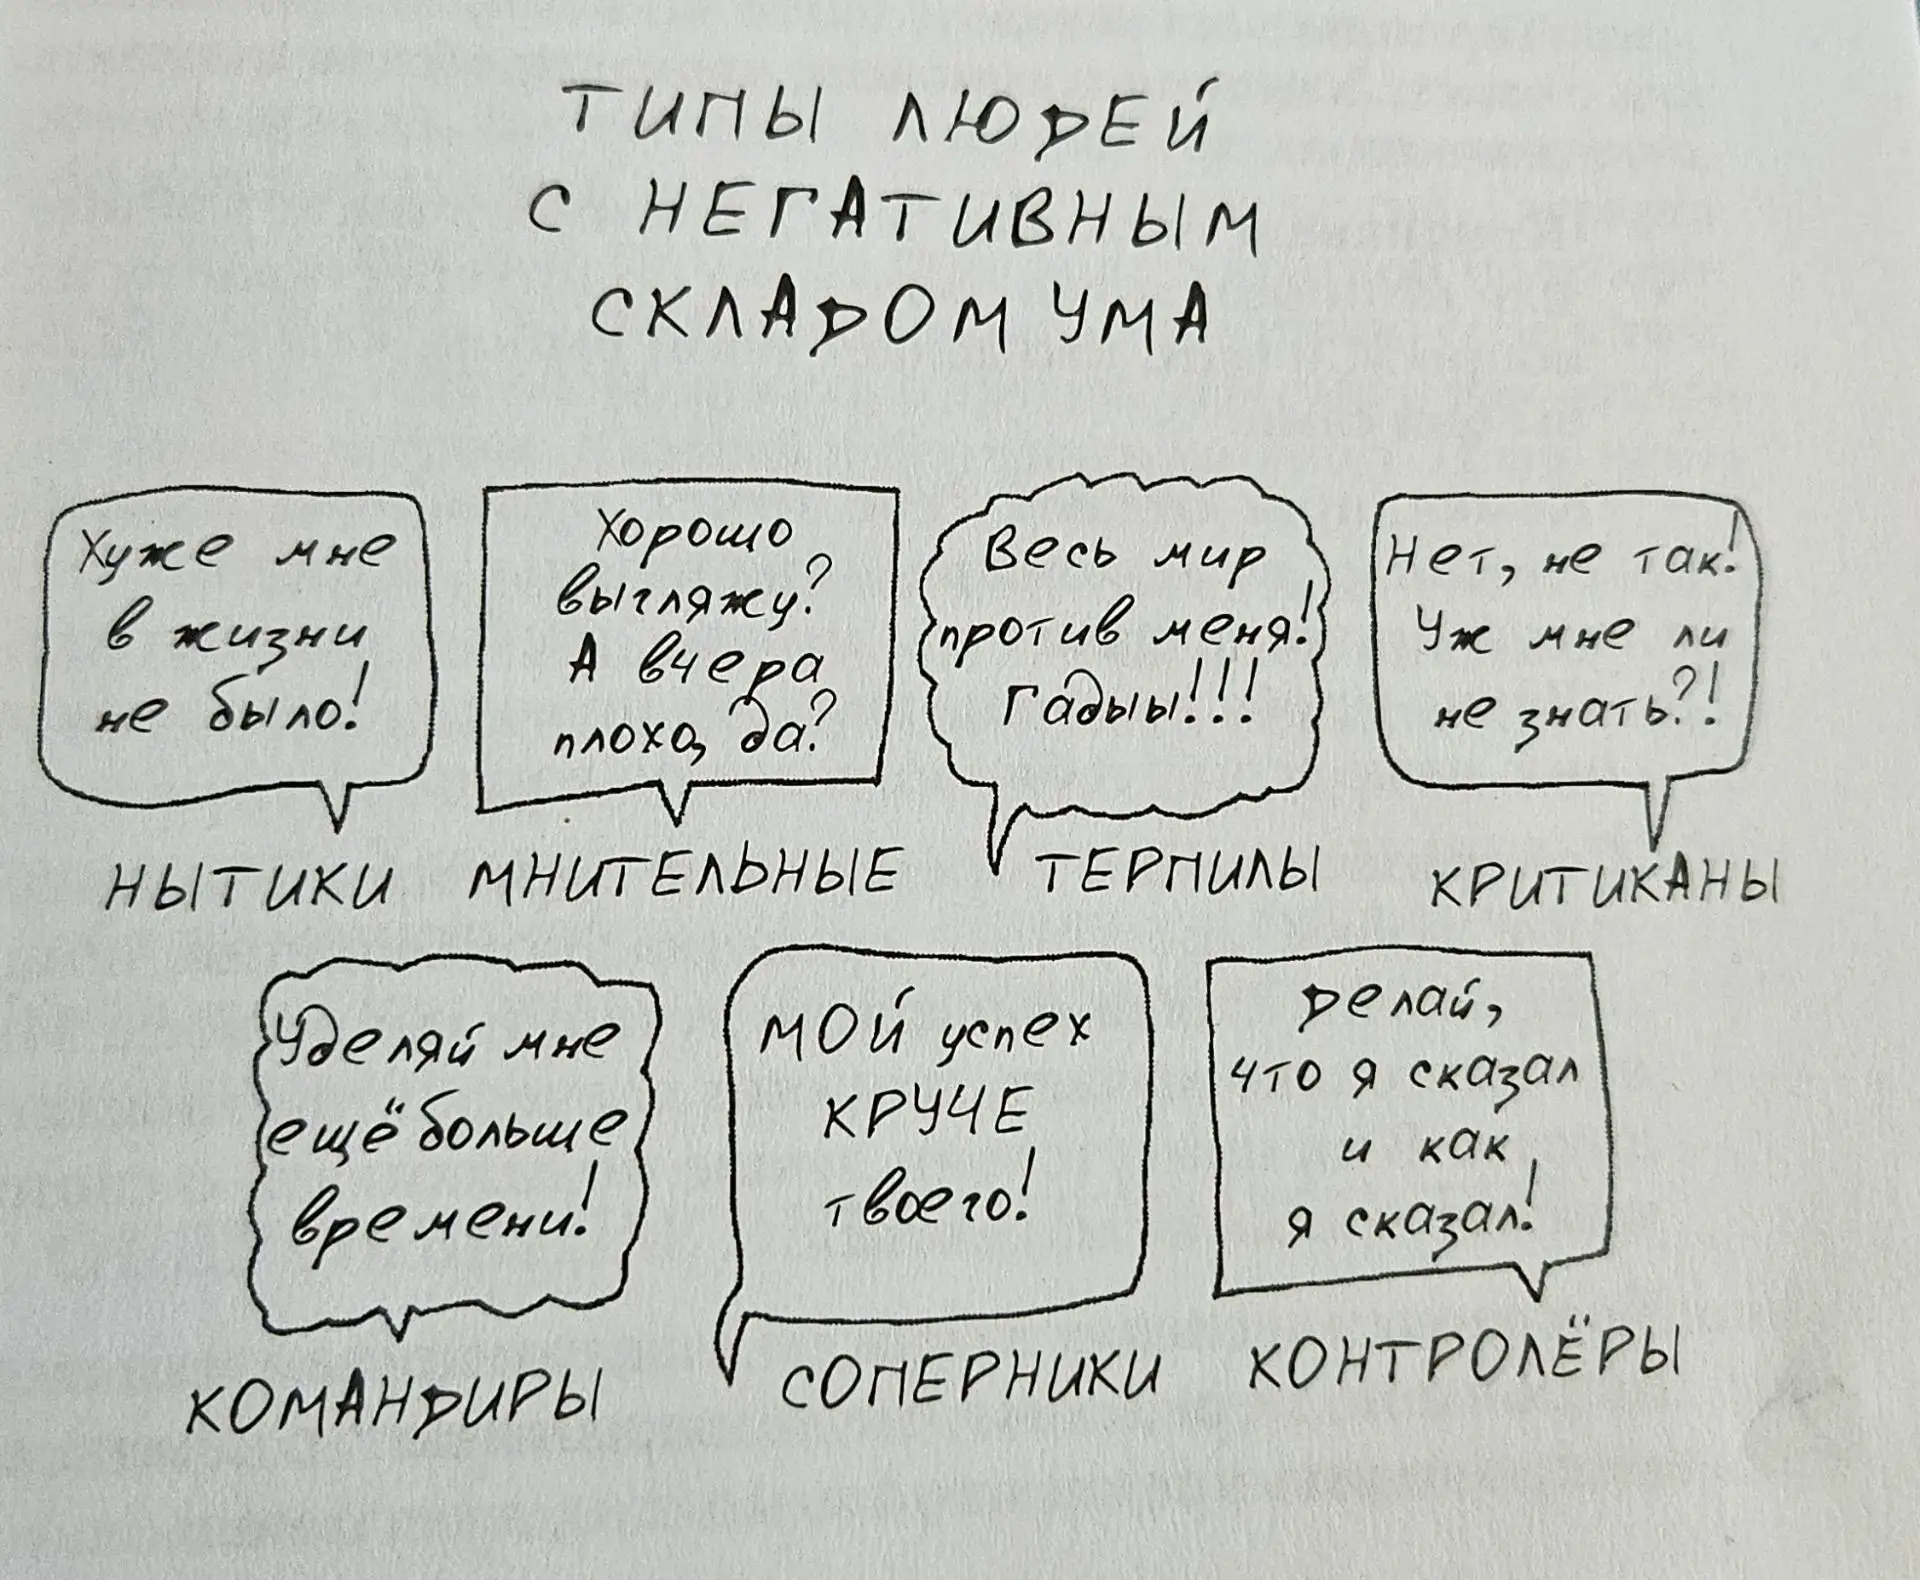 ТИПЫ ЛЮДЕЙ
С НЕГАТИВНЫМ
СКЛАДОМ УМА
Хуже мне
в жизни
не было!
НЫТИКИ
Хорошо
выгляжу?
А вчера
плохо, да?
МНИТЕЛЬНЫЕ
Весь мир
против меня!
Гадыы!!!
ТЕРПИЛЫ
Нет, не так!
Уж мне ли
не знать?!
КРИТИКАНЫ
Уделяй мне
ещё больше
времени!
КОМАНДИРЫ
МОЙ успех
КРУЧЕ
твоего!
СОПЕРНИКИ
Делай,
что я сказал
и как
я сказал!
КОНТРОЛЁРЫ